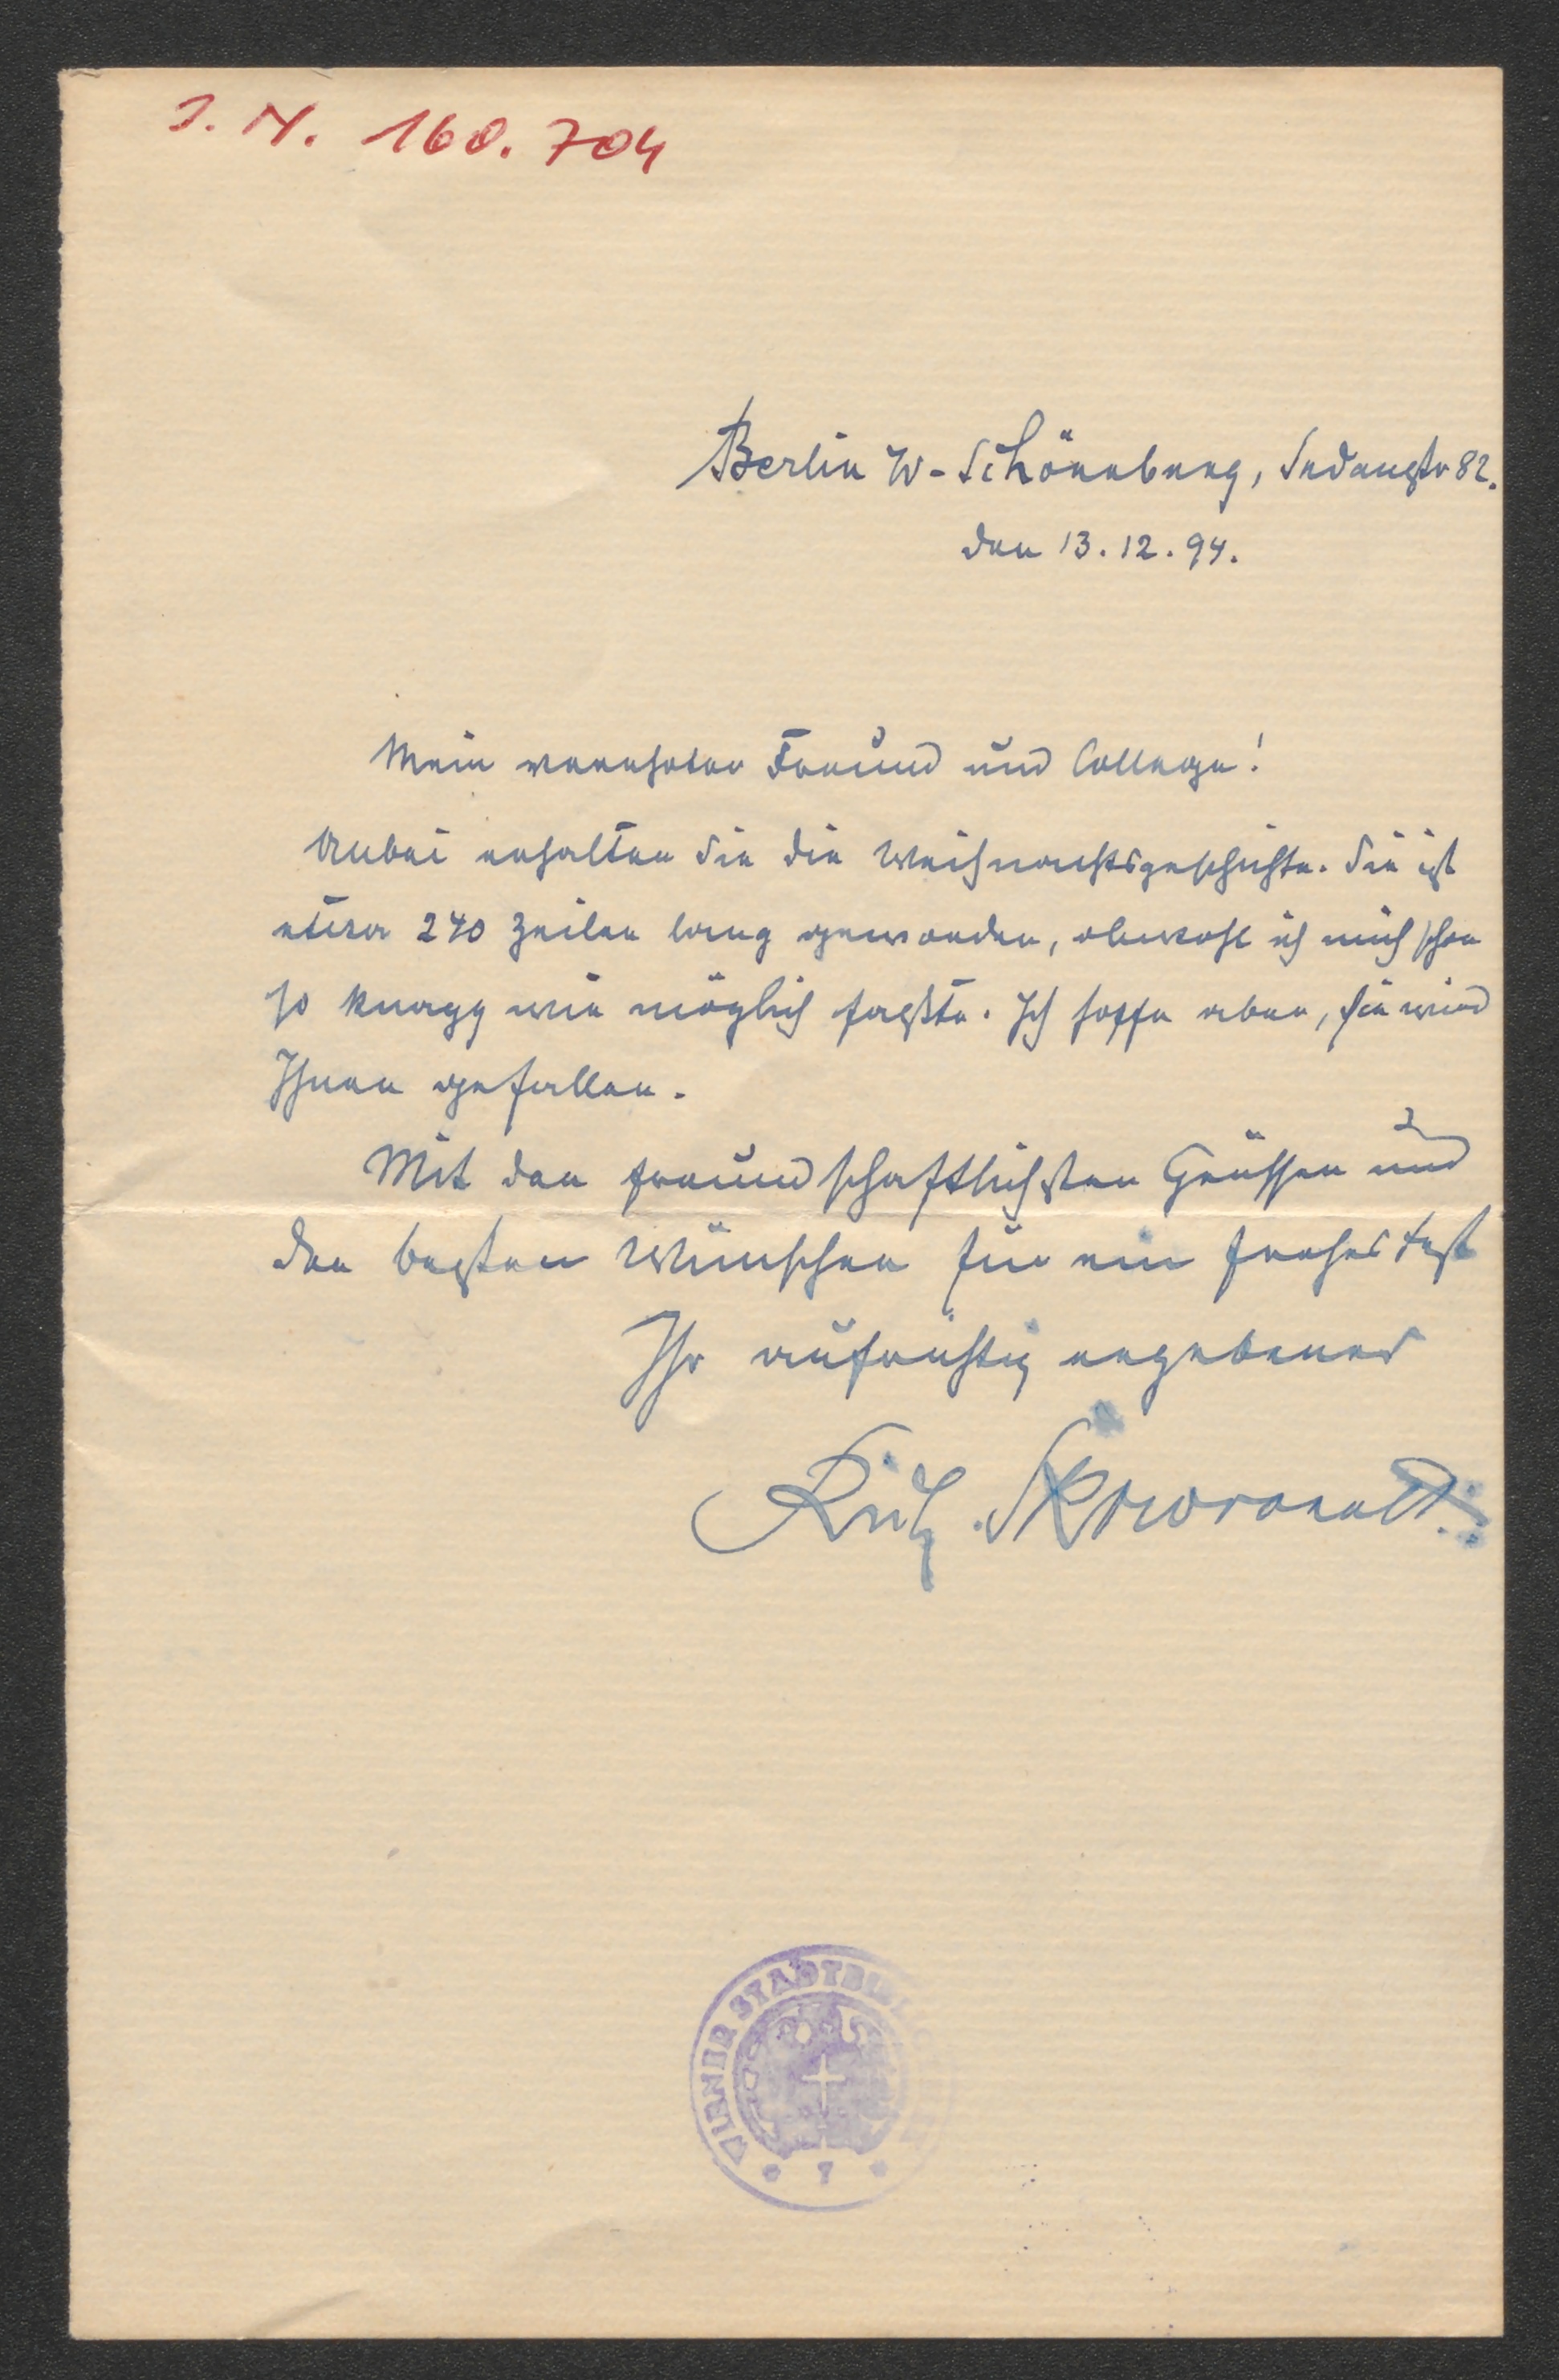 J. N. 160.704
Berlin W-Schöneberg, Sedanstr 82.
den 13.12.94.
Mein verehrter Freund und College!
Anbei erhalten Sie die Weihnachtsgeschichte. Sie ist
etwa 240 Zeilen lang geworden, obwohl ich mich schon
so knapp wie möglich faßte. Ich hoffe aber, sie wird
Ihnen gefallen.
Mit den freundschaftlichsten Grüssen und
den besten Wünschen für ein frohes Fest
Ihr aufrichtig ergebener
Skowronnek
WIENER STADTBI
7